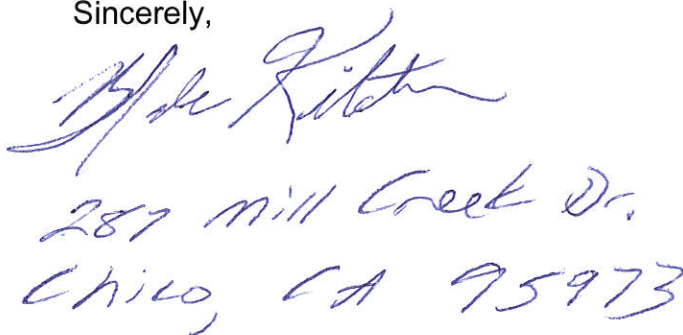 Sincerely,
287 Mill Creek Dr.
Chico, CA 95973